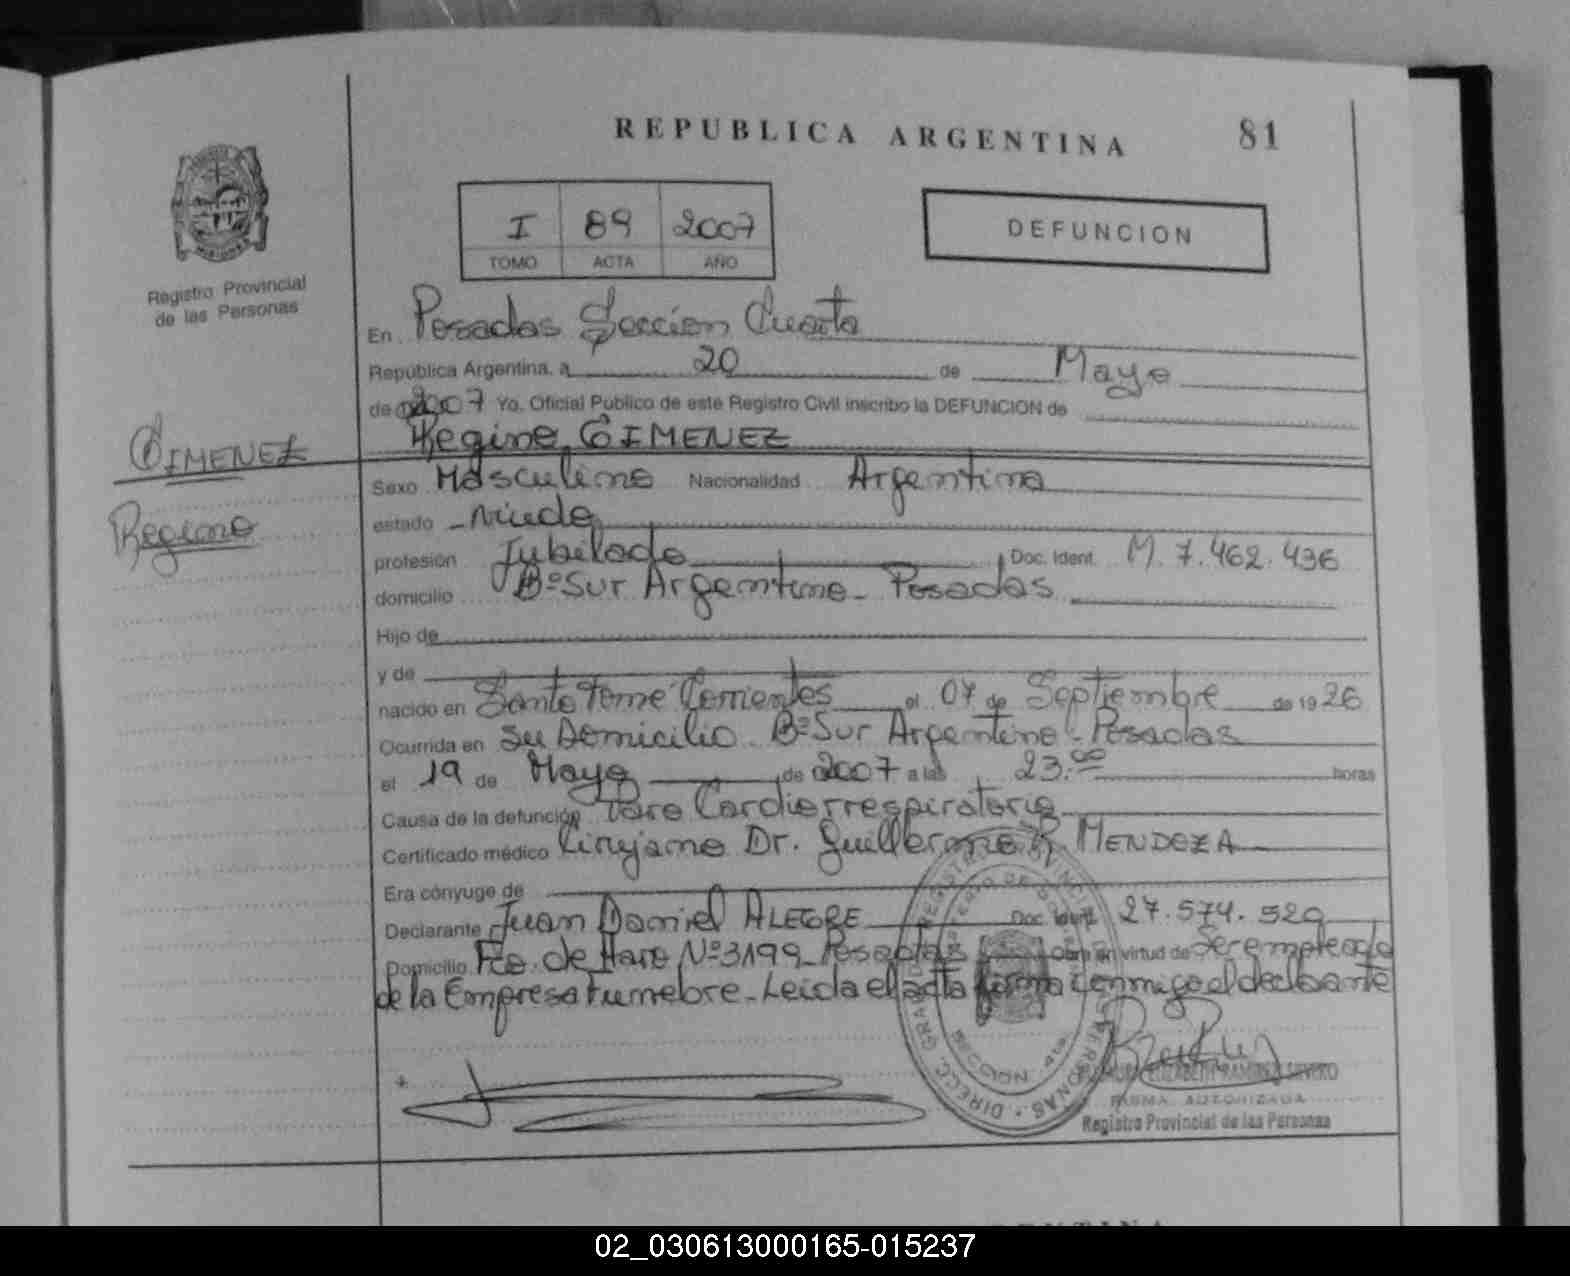 REPUBLICA ARGENTINA 81
I 89 2007
TOMO ACTA AÑO
DEFUNCION
Registro Provincial
de las Personas
En Posadas Seccion Cuarta
República Argentina, a 20 de Mayo
de 2007 Yo, Oficial Público de este Registro Civil inscribo la DEFUNCION de
Regino GIMENEZ
GIMENEZ
Regino
Sexo Masculino Nacionalidad Argentina
estado Viudo
profesión Jubilado Doc. Ident. M. 7.462.436
domicilio Bº Sur Argentino - Posadas
Hijo de
y de
nacido en Santo Tomé Corrientes el 07 de Septiembre de 1926
Ocurrida en su Domicilio. Bº Sur Argentino - Posadas
el 19 de Mayo de 2007 a las 23.00 horas
Causa de la defunción Paro Cardiorrespiratorio
Certificado médico Cirujano Dr. Guillermo R. MENDOZA
Era cónyuge de
Declarante Juan Daniel ALEGRE Doc. Ident. 27.574.529
Domicilio Fco. de Haro Nº 3199 - Posadas obra en virtud de Ser empleado
de la Empresa Funebre - Leida el acta firma conmigo el declarante
ELIZABETH RAMIREZ
FIRMA AUTORIZADA
Registro Provincial de las Personas
02_030613000165-015237